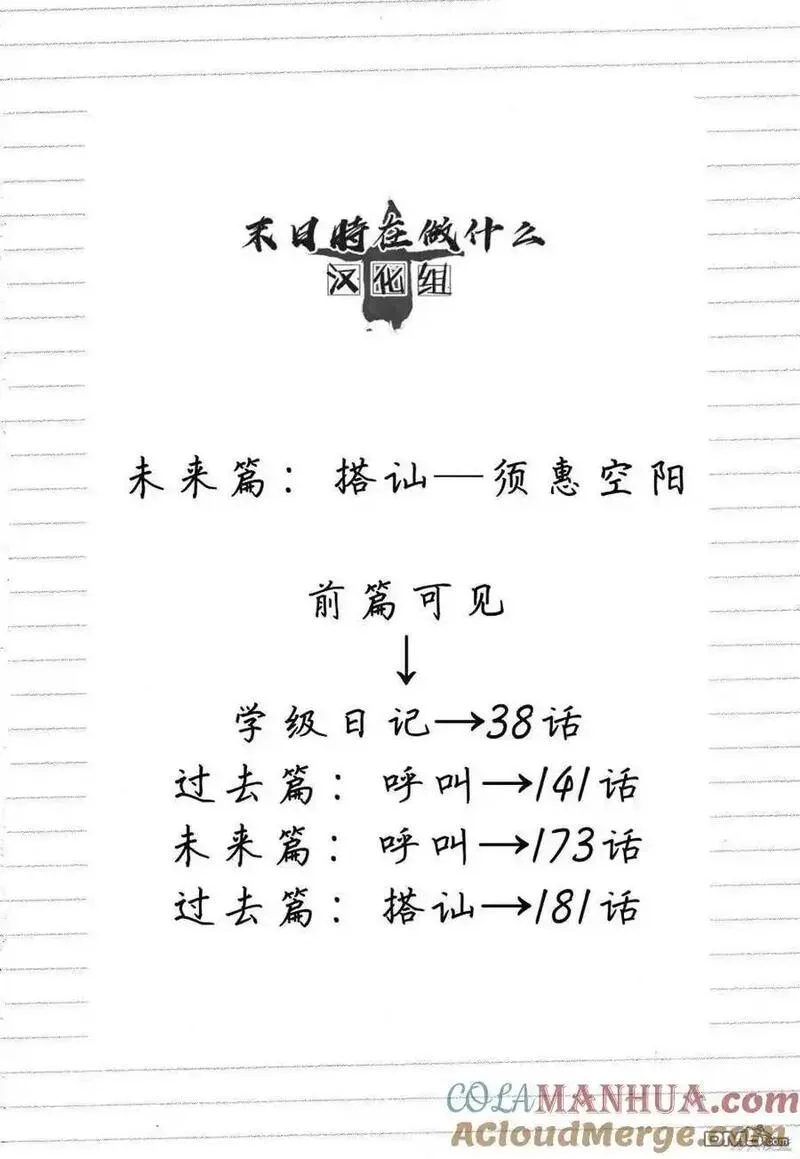 末日時在做什么
汉化组
未来篇：搭讪—须惠空阳
前篇可见
↓
学级日记→38话
过去篇：呼叫→141话
未来篇：呼叫→173话
过去篇：搭讪→181话
COLAMANHUA.com
ACloudMerge.com